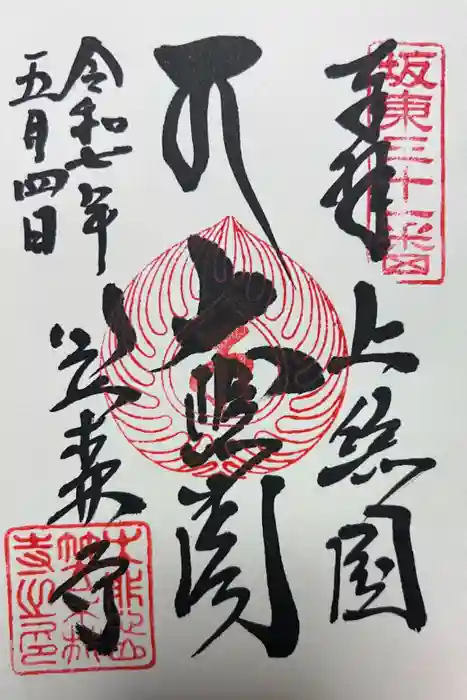 奉拝
坂東三十一番
上総国
大悲閣
令和七年
五月四日
笠森寺